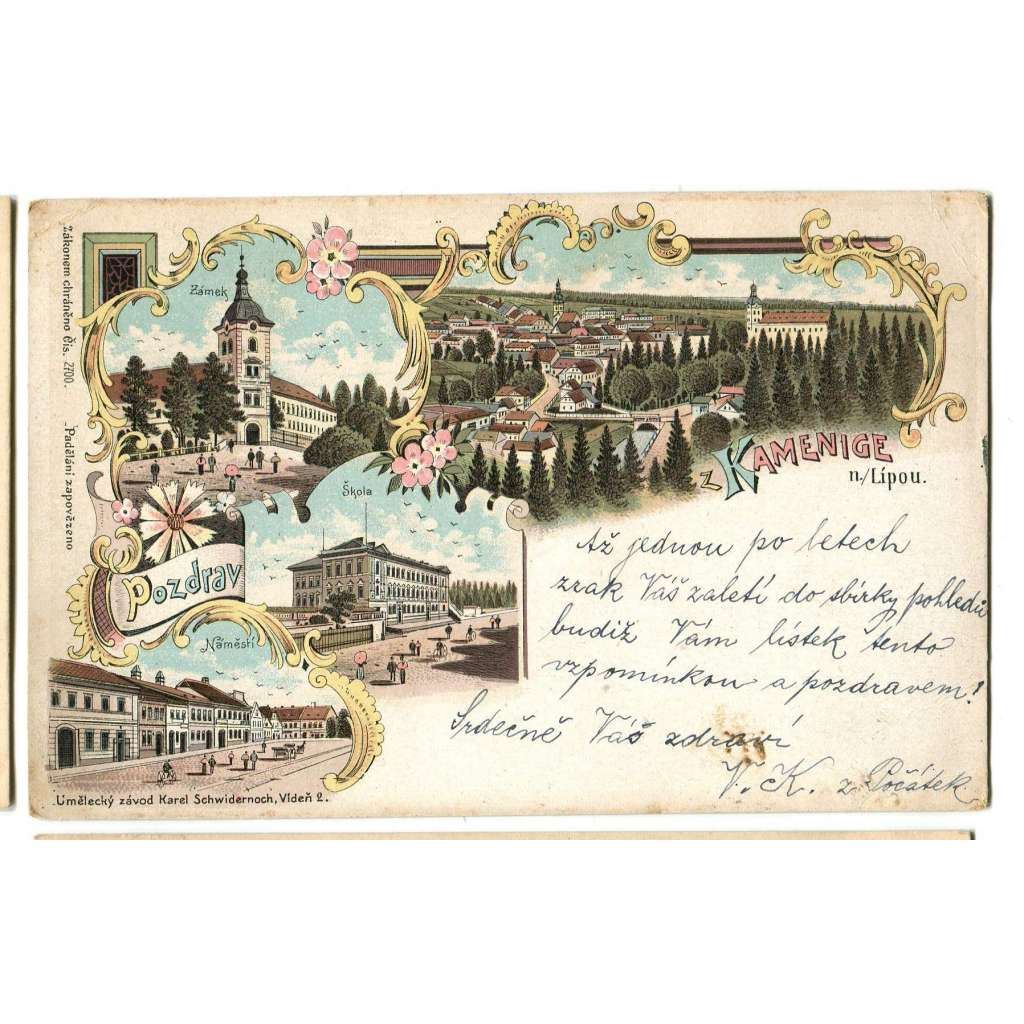 Zákonem chráněno Čís. 2700.
Padělání zapovězeno
Zámek
Škola
Pozdrav
Náměstí
z KAMENIGE
n./Lípou.
Až jednou po letech
zrak Váš zaletí do sbírky pohledů
budiž Vám lístek tento
vzpomínkou a pozdravem!
Srdečně Váš zdraví
V. K. z Počátek
Umělecký závod Karel Schwidernoch, Vídeň 2.